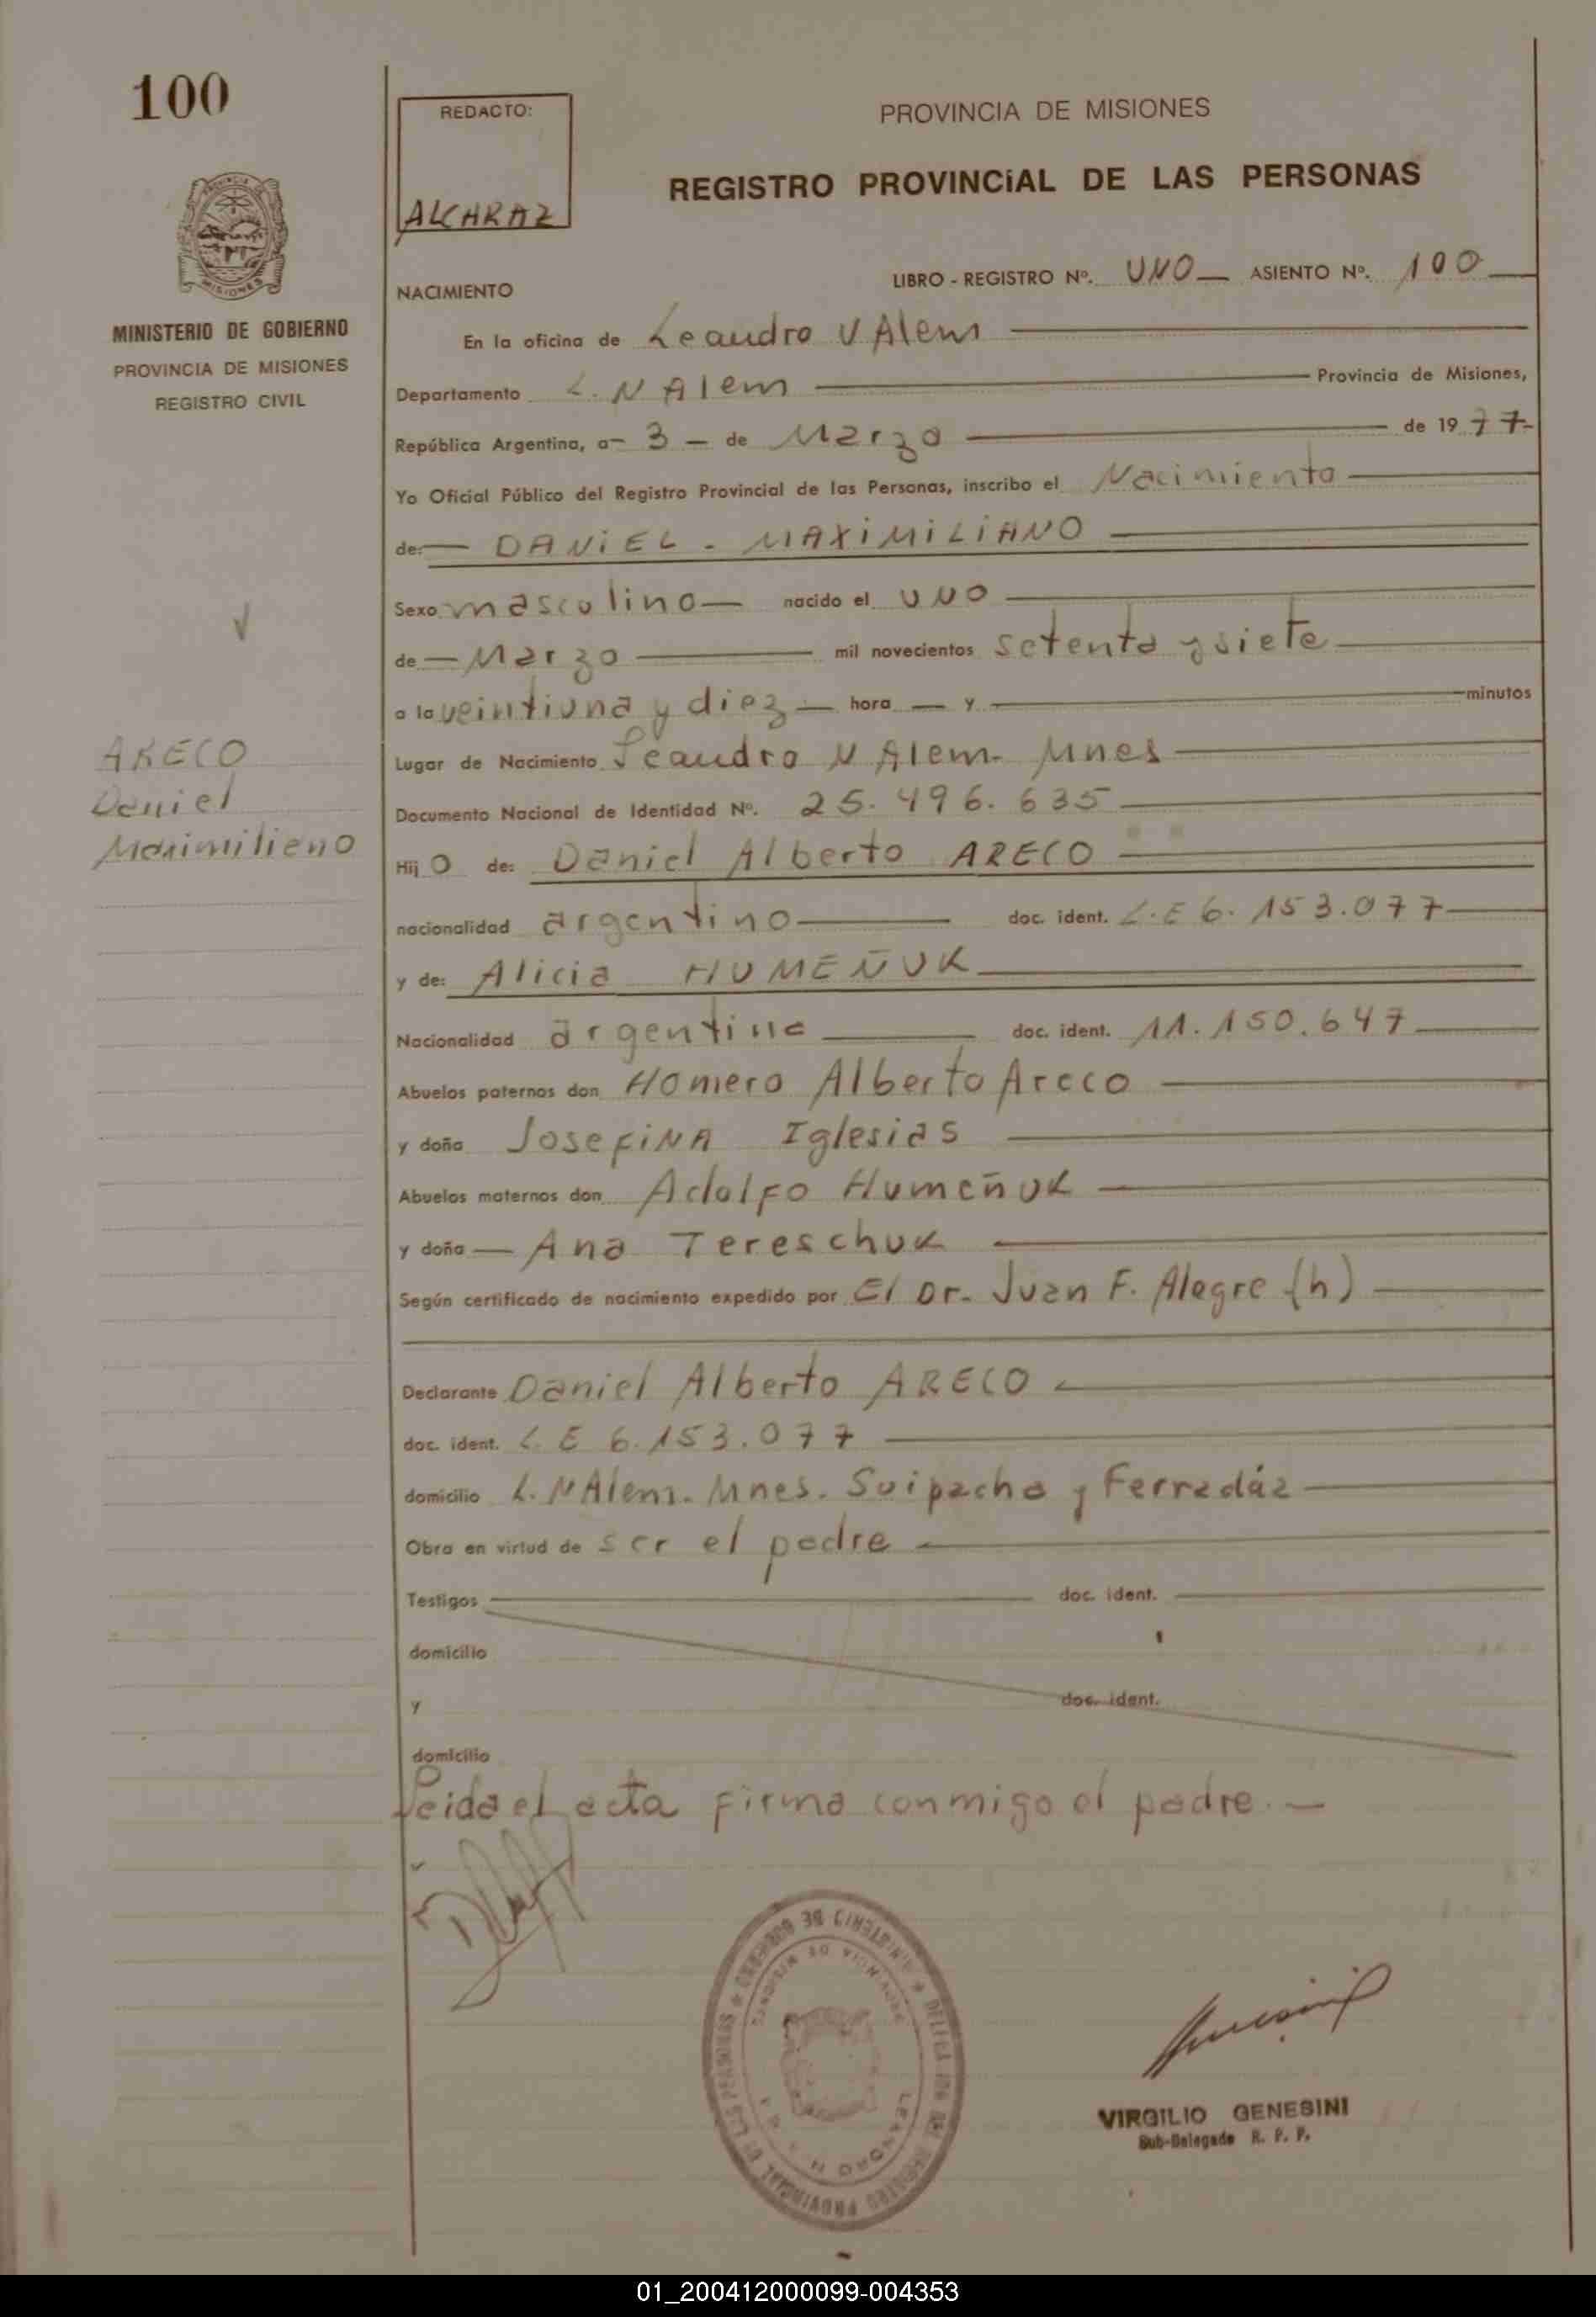 100
MINISTERIO DE GOBIERNO
PROVINCIA DE MISIONES
REGISTRO CIVIL
ARECO
Daniel
Maximiliano
REDACTO:
ALCARAZ
PROVINCIA DE MISIONES
REGISTRO PROVINCIAL DE LAS PERSONAS
NACIMIENTO
LIBRO - REGISTRO Nº. UNO ASIENTO Nº. 100
En la oficina de Leandro N Alem
Departamento L. N Alem Provincia de Misiones,
República Argentina, a 3 de Marzo de 1977
Yo Oficial Público del Registro Provincial de las Personas, inscribo el Nacimiento
de: DANIEL - MAXIMILIANO
Sexo masculino nacido el UNO
de Marzo mil novecientos setenta y siete
a la veintiuna y diez hora y minutos
Lugar de Nacimiento Leandro N Alem - Mnes
Documento Nacional de Identidad Nº. 25.496.635
Hij O de: Daniel Alberto ARECO
nacionalidad argentino doc. ident. L.E 6.153.077
y de: Alicia HUMEÑUK
Nacionalidad argentina doc. ident. 11.150.647
Abuelos paternos don Homero Alberto Areco
y doña Josefina Iglesias
Abuelos maternos don Adolfo Humeñuk
y doña Ana Tereschuk
Según certificado de nacimiento expedido por El Dr. Juan F. Alegre (h)
Declarante Daniel Alberto ARECO
doc. ident. L E 6.153.077
domicilio L. N Alem. Mnes. Suipacha y Ferradáz
Obra en virtud de ser el padre
Testigos doc. ident.
domicilio
y doc. ident.
domicilio
Leida el acta firma conmigo el padre.-
MINISTERIO DE GOBIERNO
PROVINCIA DE MISIONES
REGISTRO PROVINCIAL DE LAS PERSONAS
LEANDRO N
VIRGILIO GENESINI
Sub-Delegado R. P. P.
01_200412000099-004353